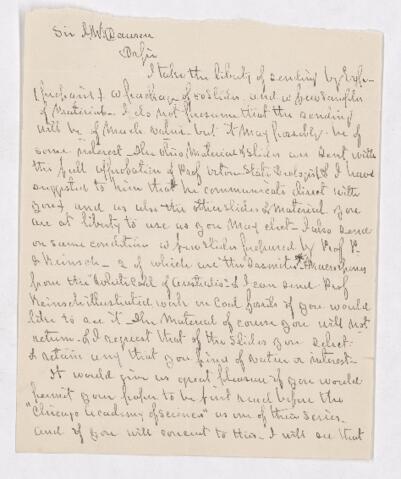 Sir J W Dawson
Dr Sir
I take the liberty of sending by Exp-
(prepaid) a package of slides and a few samples
of Material. I do not presume that the sending
will be of much value but it may possibly be of
some interest. The Ohio Material & slides are sent with
the full approbation of Prof Orton State Geologist & I have
suggested to him that he communicate direct with
you and as also the other slides & Material you
are at liberty to use as you may elect. I also send
on same condition a few slides prepared by Prof P.
F Reinsch. 2 of which are the Tasmanite & Macrospores
from the of Australia. & I can send Prof
Reinsch illustrated work on Coal fossils if you would
like to see it. The Material of course you will not
return. & I request that of the slides you select
& retain any that you find of value or interest.
It would give us great pleasure if you would
permit your paper to be first read before the
"Chicago Academy of Sciences" as one of their series.
and if you will consent to this. I will see that